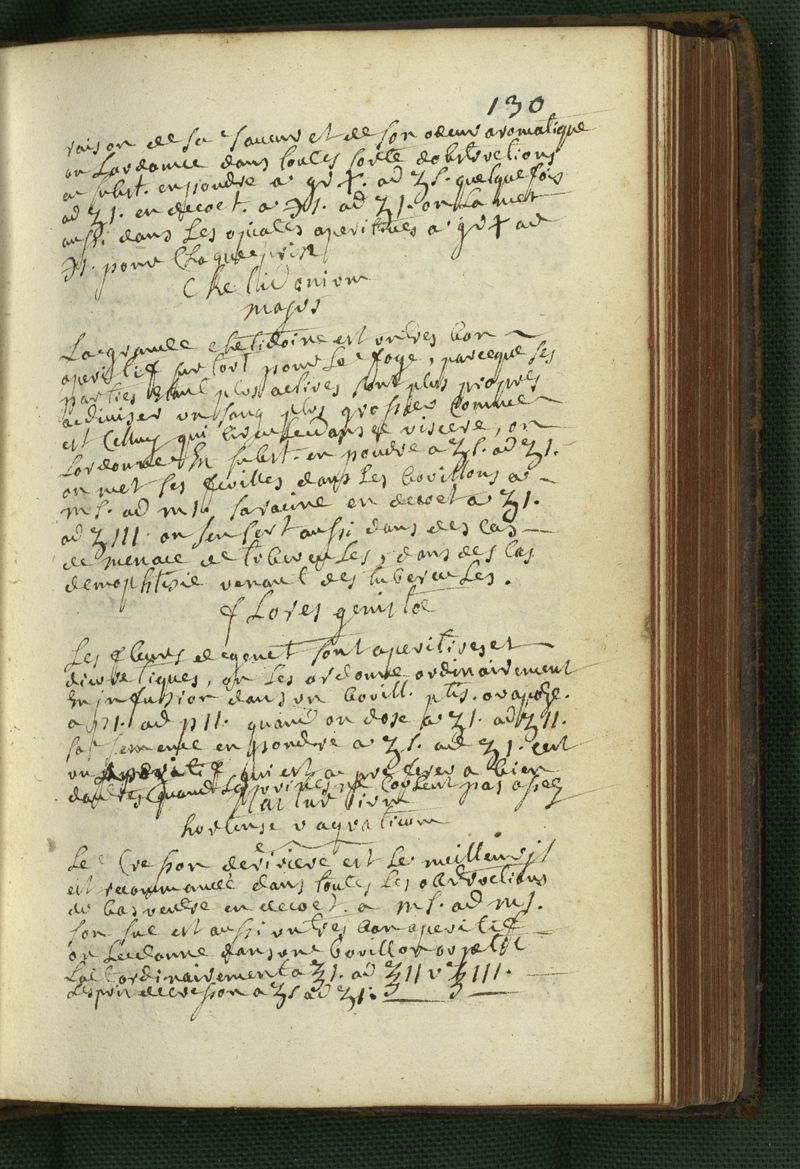 130
raison de sa saveur et de son odeur aromatique
on Lardonne dans toutes sorte dobstructions
en subst. en poudre a gr X. ad ʒ s. quelque fois
ad ʒ 1. en decoct. a ℈ 1. ad ʒ 1. on La met
aussi dans Les opiates aperitives a gr X ad
℈ 1. pour Chaque prise
Chelidonium
majus
La grande chelidoine est un tres bon
aperitif sur tout pour Le foye, parceque ses
parties etant plus actives sont plus propres
a diviser un sang plus grossier Comme
est Celluy qui circule dans ce viscere, on
Lordonne En subst. en poudre a ʒ s. ad ʒ 1.
on met ses feuilles dans Les bouillons a
m s. ad m 1. sa racine en decoct a ʒ 1.
ad ʒ III. on sen sert aussi dans des cas
de menace de tubercules, dans des cas
demophtisie venant des tubercules.
flores genistæ
Les fleurs de genet sont aperitives et
diuretiques, on Les ordonne ordinairement
En infusion dans un bouill. ptis. ou apoze.
a p 1. ad p II. quand on dose a ʒ 1. ad ʒ II.
sa semence en poudre a ʒ s. ad ʒ 1. cest
un aperitif qui est a preferer a bien
dautres quand Les urines ne Coulent pas assez
Nasturtium
hortense v aquaticum
Le Cresson de riviere est Le meilleur il
est recommandé dans toutes Les obstructions
du bas ventre en decoct. a m s. ad m 1.
son suc est aussi un tres bon aperitif
on Le donne dans un bouillon ou petit
Lait ordinairement a ʒ 1. ad ʒ II v ʒ III.
Lesprit de cresson a ʒ s ad ʒ 1.